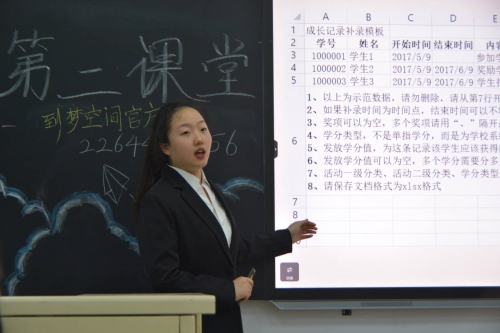 第二课堂
到梦空间官方
22644
56
A B C D E
1 成长记录补录模板
2 学号 姓名 开始时间 结束时间 内容
3 1000001 学生1 2017/5/9 参加学
4 1000002 学生2 2017/5/9 2017/6/9 奖励学
5 1000003 学生3 2017/5/9 2017/6/9 学生担
6
1、以上为示范数据，请勿删除，请从第7行开
2、如果补录时间为时间点，结束时间可以不填
3、奖项可以为空，多个奖项请用“、”隔开
4、学分类型，不是单指学分，而是为学校系
5、发放学分值，为这条记录该学生应该获得
6、发放学分值可以为空，多个学分需要分多
7、活动一级分类、活动二级分类、学分类型
8、请保存文档格式为xlsx格式
7
8